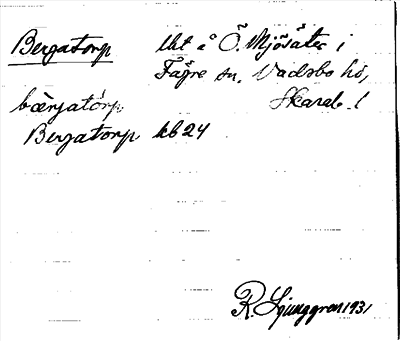 Bergatorp lht å Ö. Mjösäter i
Fägre sn, Vadsbo hd,
Skarab. l
bærjatórp
Bergatorp kb 24
R. Ljunggren 1931